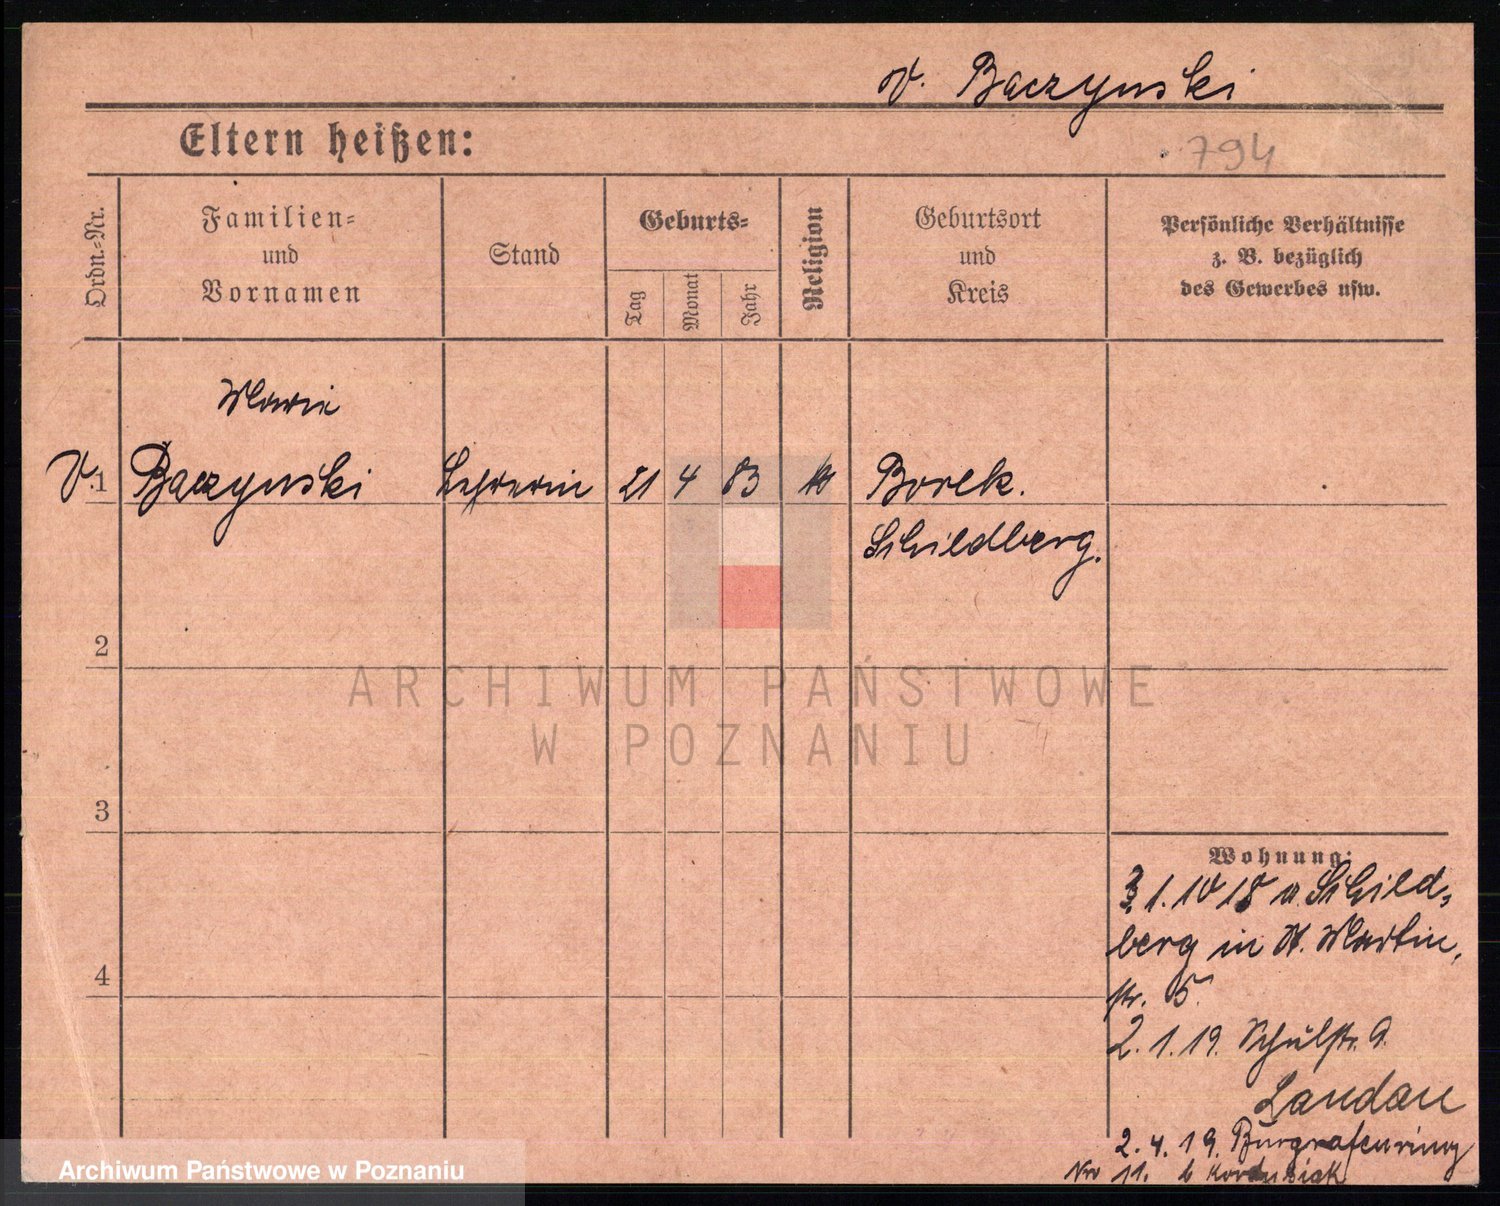 v. Baczynski
Eltern heißen:
794
Ordn.=Nr.
Familien=
und
Vornamen
Stand
Geburts=
Tag
Monat
Jahr
Religion
Geburtsort
und
Kreis
Persönliche Verhältnisse
z. B. bezüglich
des Gewerbes usw.
Marie
v. 1 Baczynski Lehrerin 21 4 83 k Borek.
Schildberg.
2
3
4
Wohnung:
3. 1. 10 18 v. Schild=
berg in St. Martin,
str. 5.
2. 1. 19. Schulstr. 9.
Landau
2. 4. 19. Burggrafenring
No 11. b
ARCHIWUM PAŃSTWOWE
W POZNANIU
Archiwum Państwowe w Poznaniu